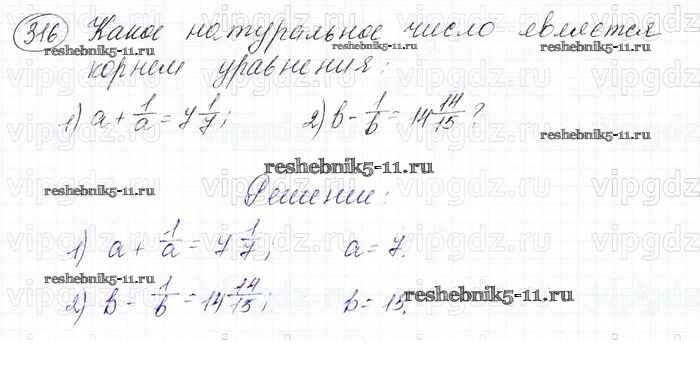 316 Какое натуральное число является
reshebnik5-11.ru reshebnik5-11.ru
корнем уравнения:
vipgdz.ru vipgdz.ru vipgdz.ru
1) a + 1/a = 7 1/7; 2) b - 1/b = 14 14/15?
reshebnik5-11.ru
reshebnik5-11.ru
reshebnik5-11.ru Решение:
vipgdz.ru vipgdz.ru vipgdz.ru
1) a + 1/a = 7 1/7; a = 7.
reshebnik5-11.ru
2) b - 1/b = 14 14/15; b = 15.
reshebnik5-11.ru